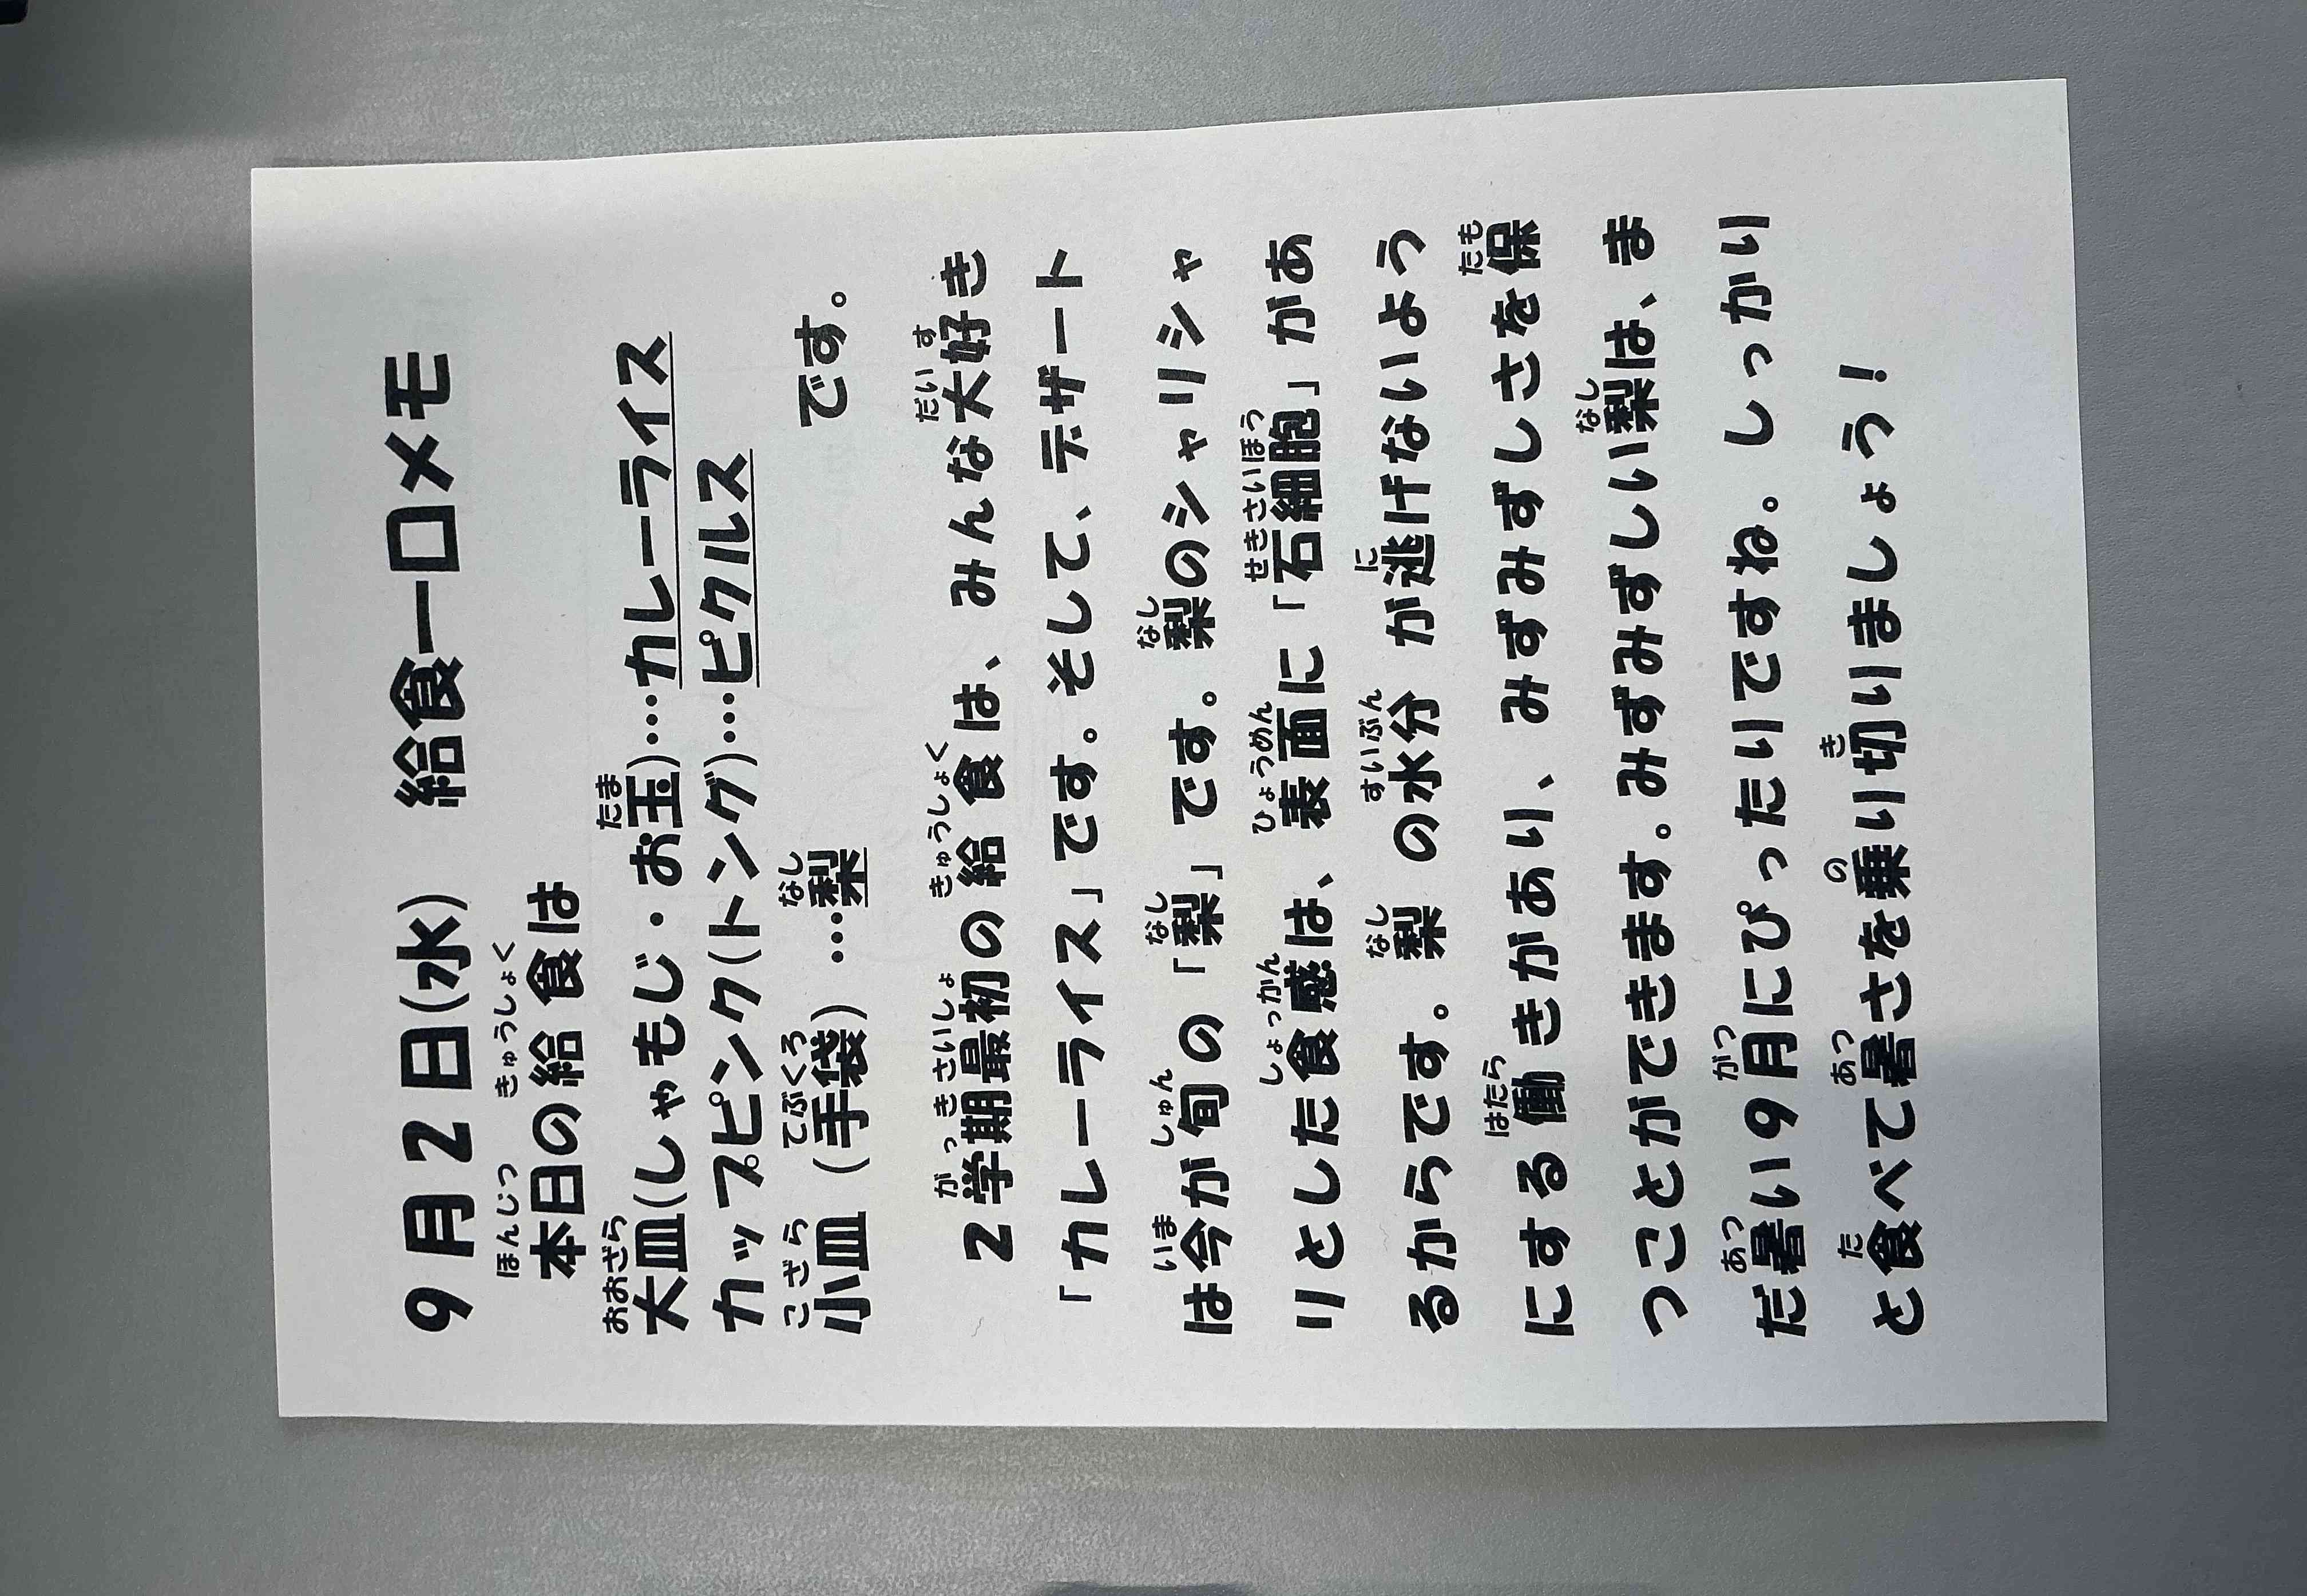 9月2日(水)　給食一口メモ
本日の給食は
大皿(しゃもじ・お玉)…カレーライス
カップピンク(トング)…ピクルス
小皿（手袋）…梨　　　　　　　です。
2学期最初の給食は、みんな大好き
「カレーライス」です。そして、デザート
は今が旬の「梨」です。梨のシャリシャ
リとした食感は、表面に「石細胞」があ
るからです。梨の水分が逃げないよう
にする働きがあり、みずみずしさを保
つことができます。みずみずしい梨は、ま
だ暑い9月にぴったりですね。しっかり
と食べて暑さを乗り切りましょう！